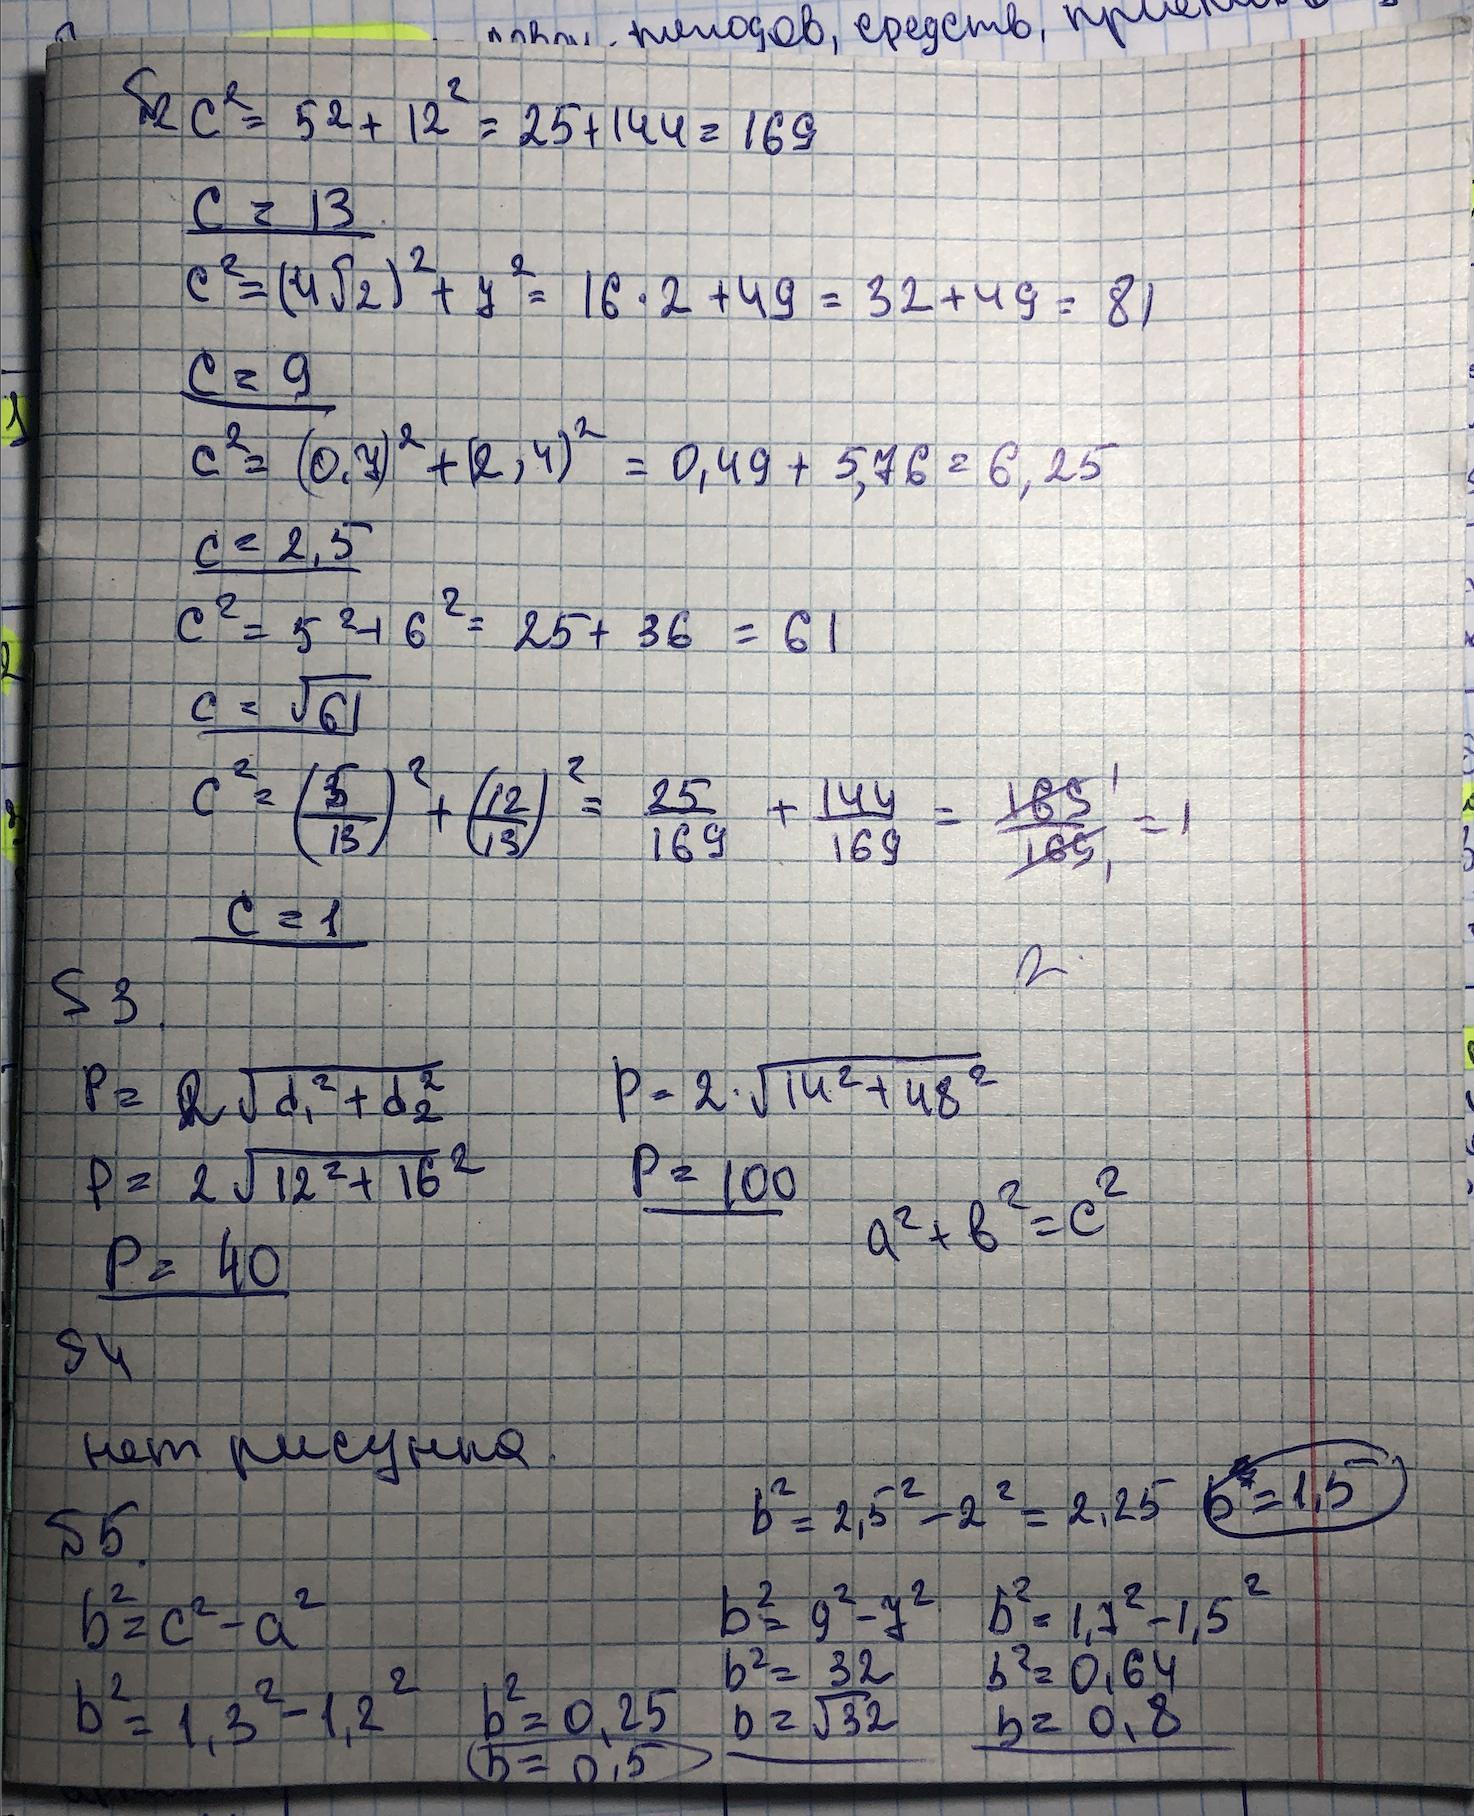 методов, средств,
S2 c² = 52 + 12² = 25 + 144 = 169
c = 13
c² = (4√2)² + 7² = 16 · 2 + 49 = 32 + 49 = 81
c = 9
c² = (0.7)² + (2,4)² = 0,49 + 5,76 = 6,25
c = 2,5
c² = 5² + 6² = 25 + 36 = 61
c = √61
c² = (5/13)² + (12/13)² = 25/169 + 144/169 = 169/169 = 1
c = 1
2
S3.
P = 2√d₁² + d₂²
P = 2 · √14² + 48²
P = 2√12² + 16²
P = 100
P = 40
a² + b² = c²
S4
нет рисунка.
S5.
b² = 2,5² - 2² = 2,25 b = 1,5
b² = c² - a²
b² = 1,3² - 1,2²
b² = 0,25
b = 0,5
b² = 9² - 7²
b² = 32
b = √32
b² = 1,7² - 1,5²
b² = 0,64
b = 0,8